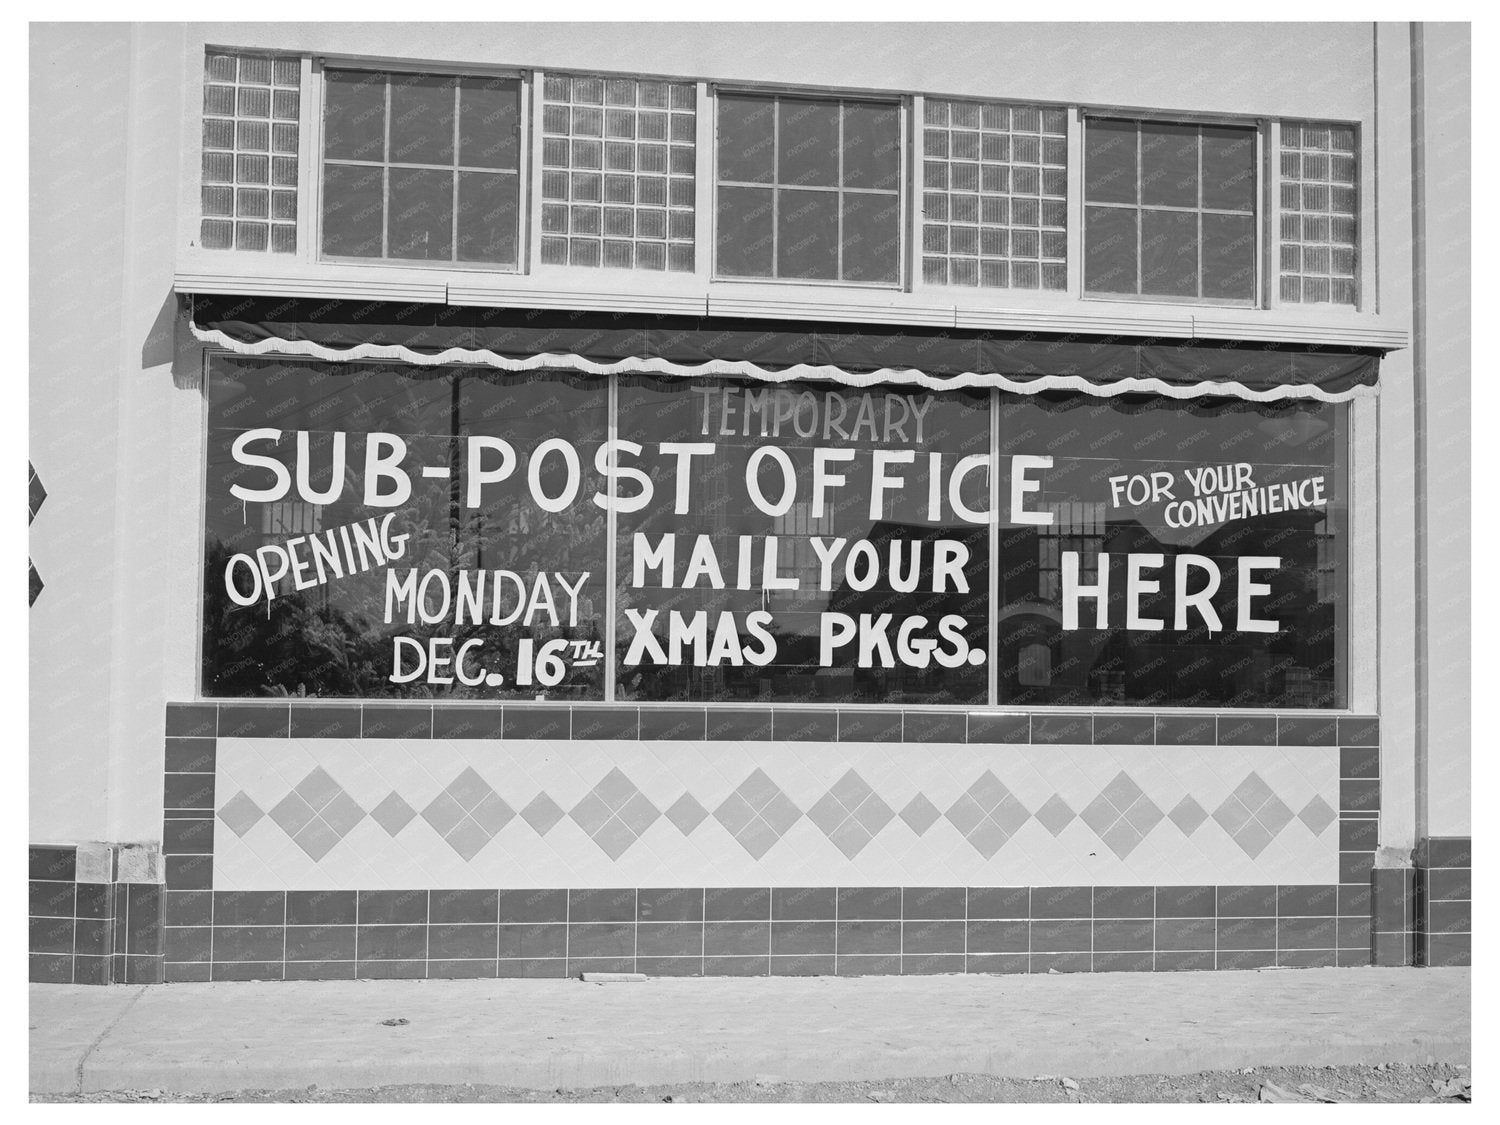 TEMPORARY
SUB-POST OFFICE
FOR YOUR
CONVENIENCE
OPENING
MONDAY
DEC. 16TH
MAIL YOUR
XMAS PKGS.
HERE
KNOWOL